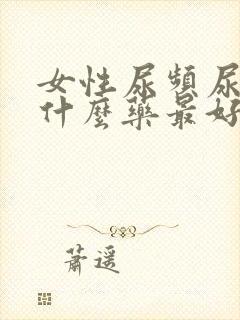 女性尿頻尿
什麼藥最好
蕭遙